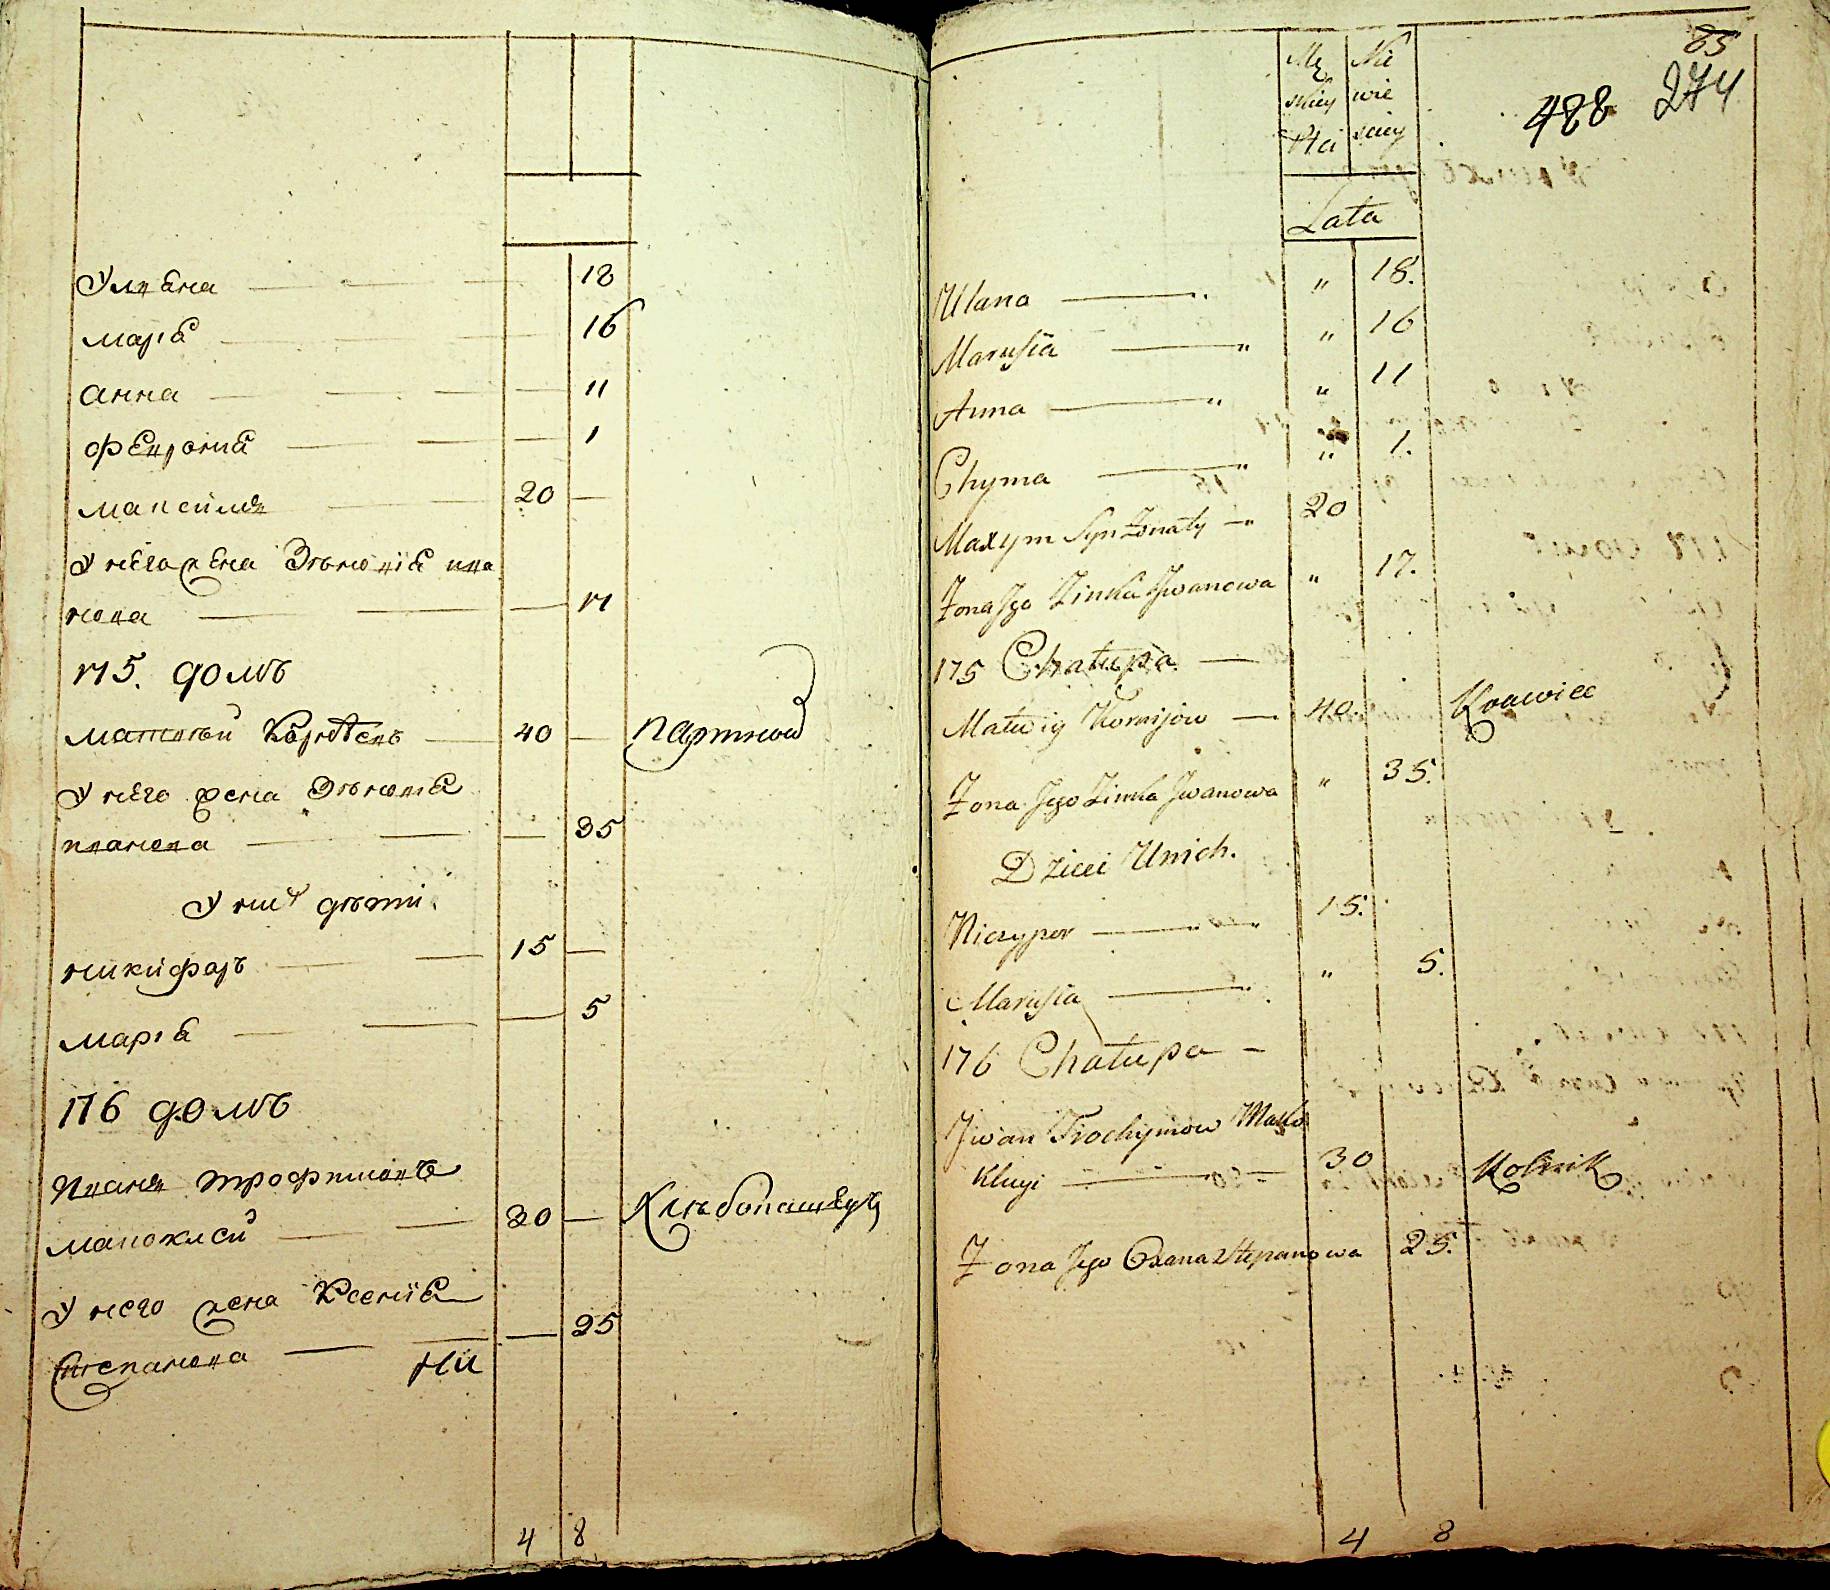 Улияна 18
Мариа 16
Анна 11
Феврониа 1
Максимъ 20
У него жена Зѣновіа Ива
нова 17
175. домъ
Матвѣй Корнѣевъ 40 Партной
У него жена Зѣновіа
Иванова 35
У них дѣти
Никифоръ 15
Мариа 5
176 домъ
Иванъ Трофимовъ
Маноклей 30 Хлѣбопашецъ
У него жена Ксеніа
Степанова 25
4 8
85
488 274
Mę Nie
skiey wie
Płci sciey
Lata
Ulana " 18.
Marusia " 16
Anna " 11
Chyma " 1.
Maxym Syn Żonaty 20
Żona Jgo Zinka Jwanowa " 17.
175 Chałupa
Matwiy Kornijow 40. Krawiec
Żona Jego Zinka Jwanowa " 35.
Dzieci Unich.
Niczypor 15.
Marusia " 5.
176 Chałupa
Jwan Trochymow
30 Rolnik
Żona Jego Oxana Stepanowa 25.
4 8